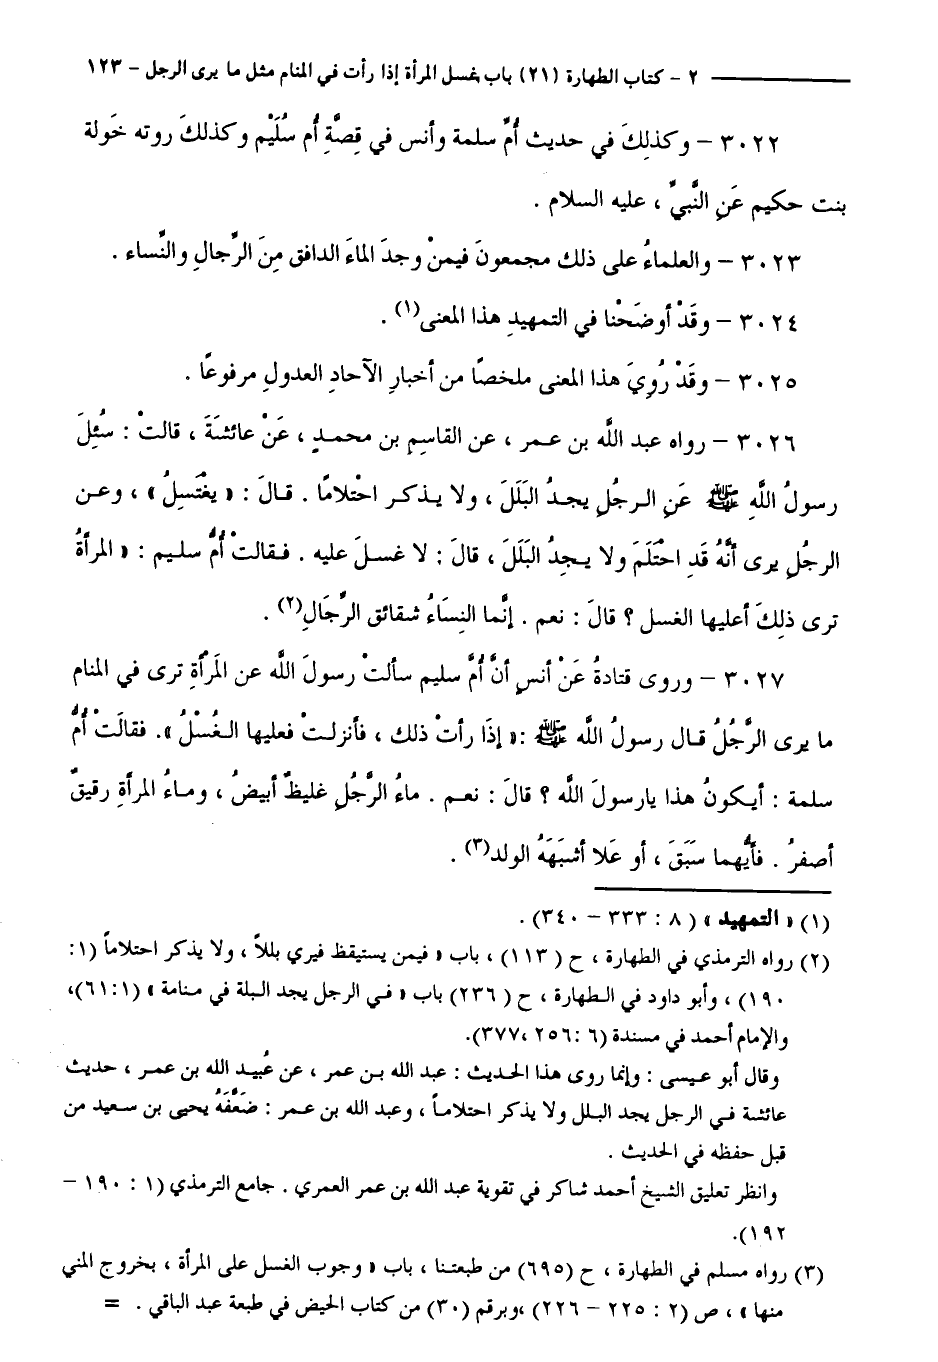 ٢ – كتاب الطهارة (٢١) باب غسل المرأة إذا رأت في المنام مثل ما يرى الرجل – ١٢٣
٣٠٢٢ – وكذلِكَ في حديث أُمِّ سلمة وأنس في قِصَّةِ أُم سُلَيْم وكذلكَ روته خَولة
بنت حكيم عَنِ النَّبيِّ ، عليه السلام .
٣٠٢٣ – والعلماءُ على ذلك مجمعونَ فيمنْ وجدَ الماءَ الدافق مِنَ الرِّجالِ والنِّساء .
٣٠٢٤ – وقَدْ أوضَحْنا في التمهيدِ هذا المعنى(١) .
٣٠٢٥ – وقَدْ رُوِيَ هذا المعنى ملخصًا من أخبارِ الآحادِ العدولِ مرفوعًا .
٣٠٢٦ – رواه عبد اللَّه بن عمر ، عن القاسمِ بن محمدٍ ، عَنْ عائشَةَ ، قالتْ : سُئِلَ
رسولُ اللَّهِ ﷺ عَنِ الرجُلِ يجدُ البَلَلَ ، ولا يذكر احْتلامًا . قالَ : « يغْتَسِلُ » ، وعن
الرجُلِ يرى أَنَّهُ قَدِ احْتَلَمَ ولا يجدِ البَلَلَ ، قالَ : لا غسلَ عليه . فقالتْ أُمُّ سليم : « المرأةُ
ترى ذلِكَ أعليها الغسل ؟ قالَ : نعم . إنَّما النِسَاءُ شقائق الرِّجَالِ(٢) .
٣٠٢٧ – وروى قتادةُ عَنْ أنسٍ أنَّ أُمَّ سليم سألتْ رسولَ اللَّه عن المَرْأةِ ترى في المنام
ما يرى الرَّجُلُ قال رسولُ اللَّه ﷺ :« إذَا رأتْ ذلك ، فأنزلتْ فعليها الغُسْلُ ». فقالَتْ أُمُّ
سلمة : أيكونُ هذا يارسولَ اللَّه ؟ قالَ : نعم . ماءُ الرَّجُلِ غليظٌ أبيضُ ، وماءُ المرأةِ رقيقٌ
أصفرُ . فأيُّهما سَبَقَ ، أو عَلا أشبَهَهُ الولد(٣) .
(١) « التمهيد » (٨ : ٣٣٣ – ٣٤٠) .
(٢) رواه الترمذي في الطهارة ، ح (١١٣) ، باب « فيمن يستيقظ فيري بللاً ، ولا يذكر احتلاماً (١:
١٩٠) ، وأبو داود في الطهارة ، ح (٢٣٦) باب « في الرجل يجد البلة في منامة » (٦١:١)،
والإمام أحمد في مسندة (٦ :٢٥٦ ،٣٧٧).
وقال أبو عيسى : وإنما روى هذا الحديث : عبد الله بن عمر ، عن عُبيد الله بن عمر ، حديث
عائشة في الرجل يجد البلل ولا يذكر احتلاماً ، وعبد الله بن عمر : ضَعَّفَهُ يحيى بن سعيد من
قبل حفظه في الحديث .
وانظر تعليق الشيخ أحمد شاكر في تقوية عبد الله بن عمر العمري . جامع الترمذي (١ : ١٩٠ –
١٩٢).
(٣) رواه مسلم في الطهارة ، ح (٦٩٥) من طبعتنا ، باب « وجوب الغسل على المرأة ، بخروج المني
منها » ، ص (٢ : ٢٢٥ – ٢٢٦) ،وبرقم (٣٠) من كتاب الحيض في طبعة عبد الباقي . =